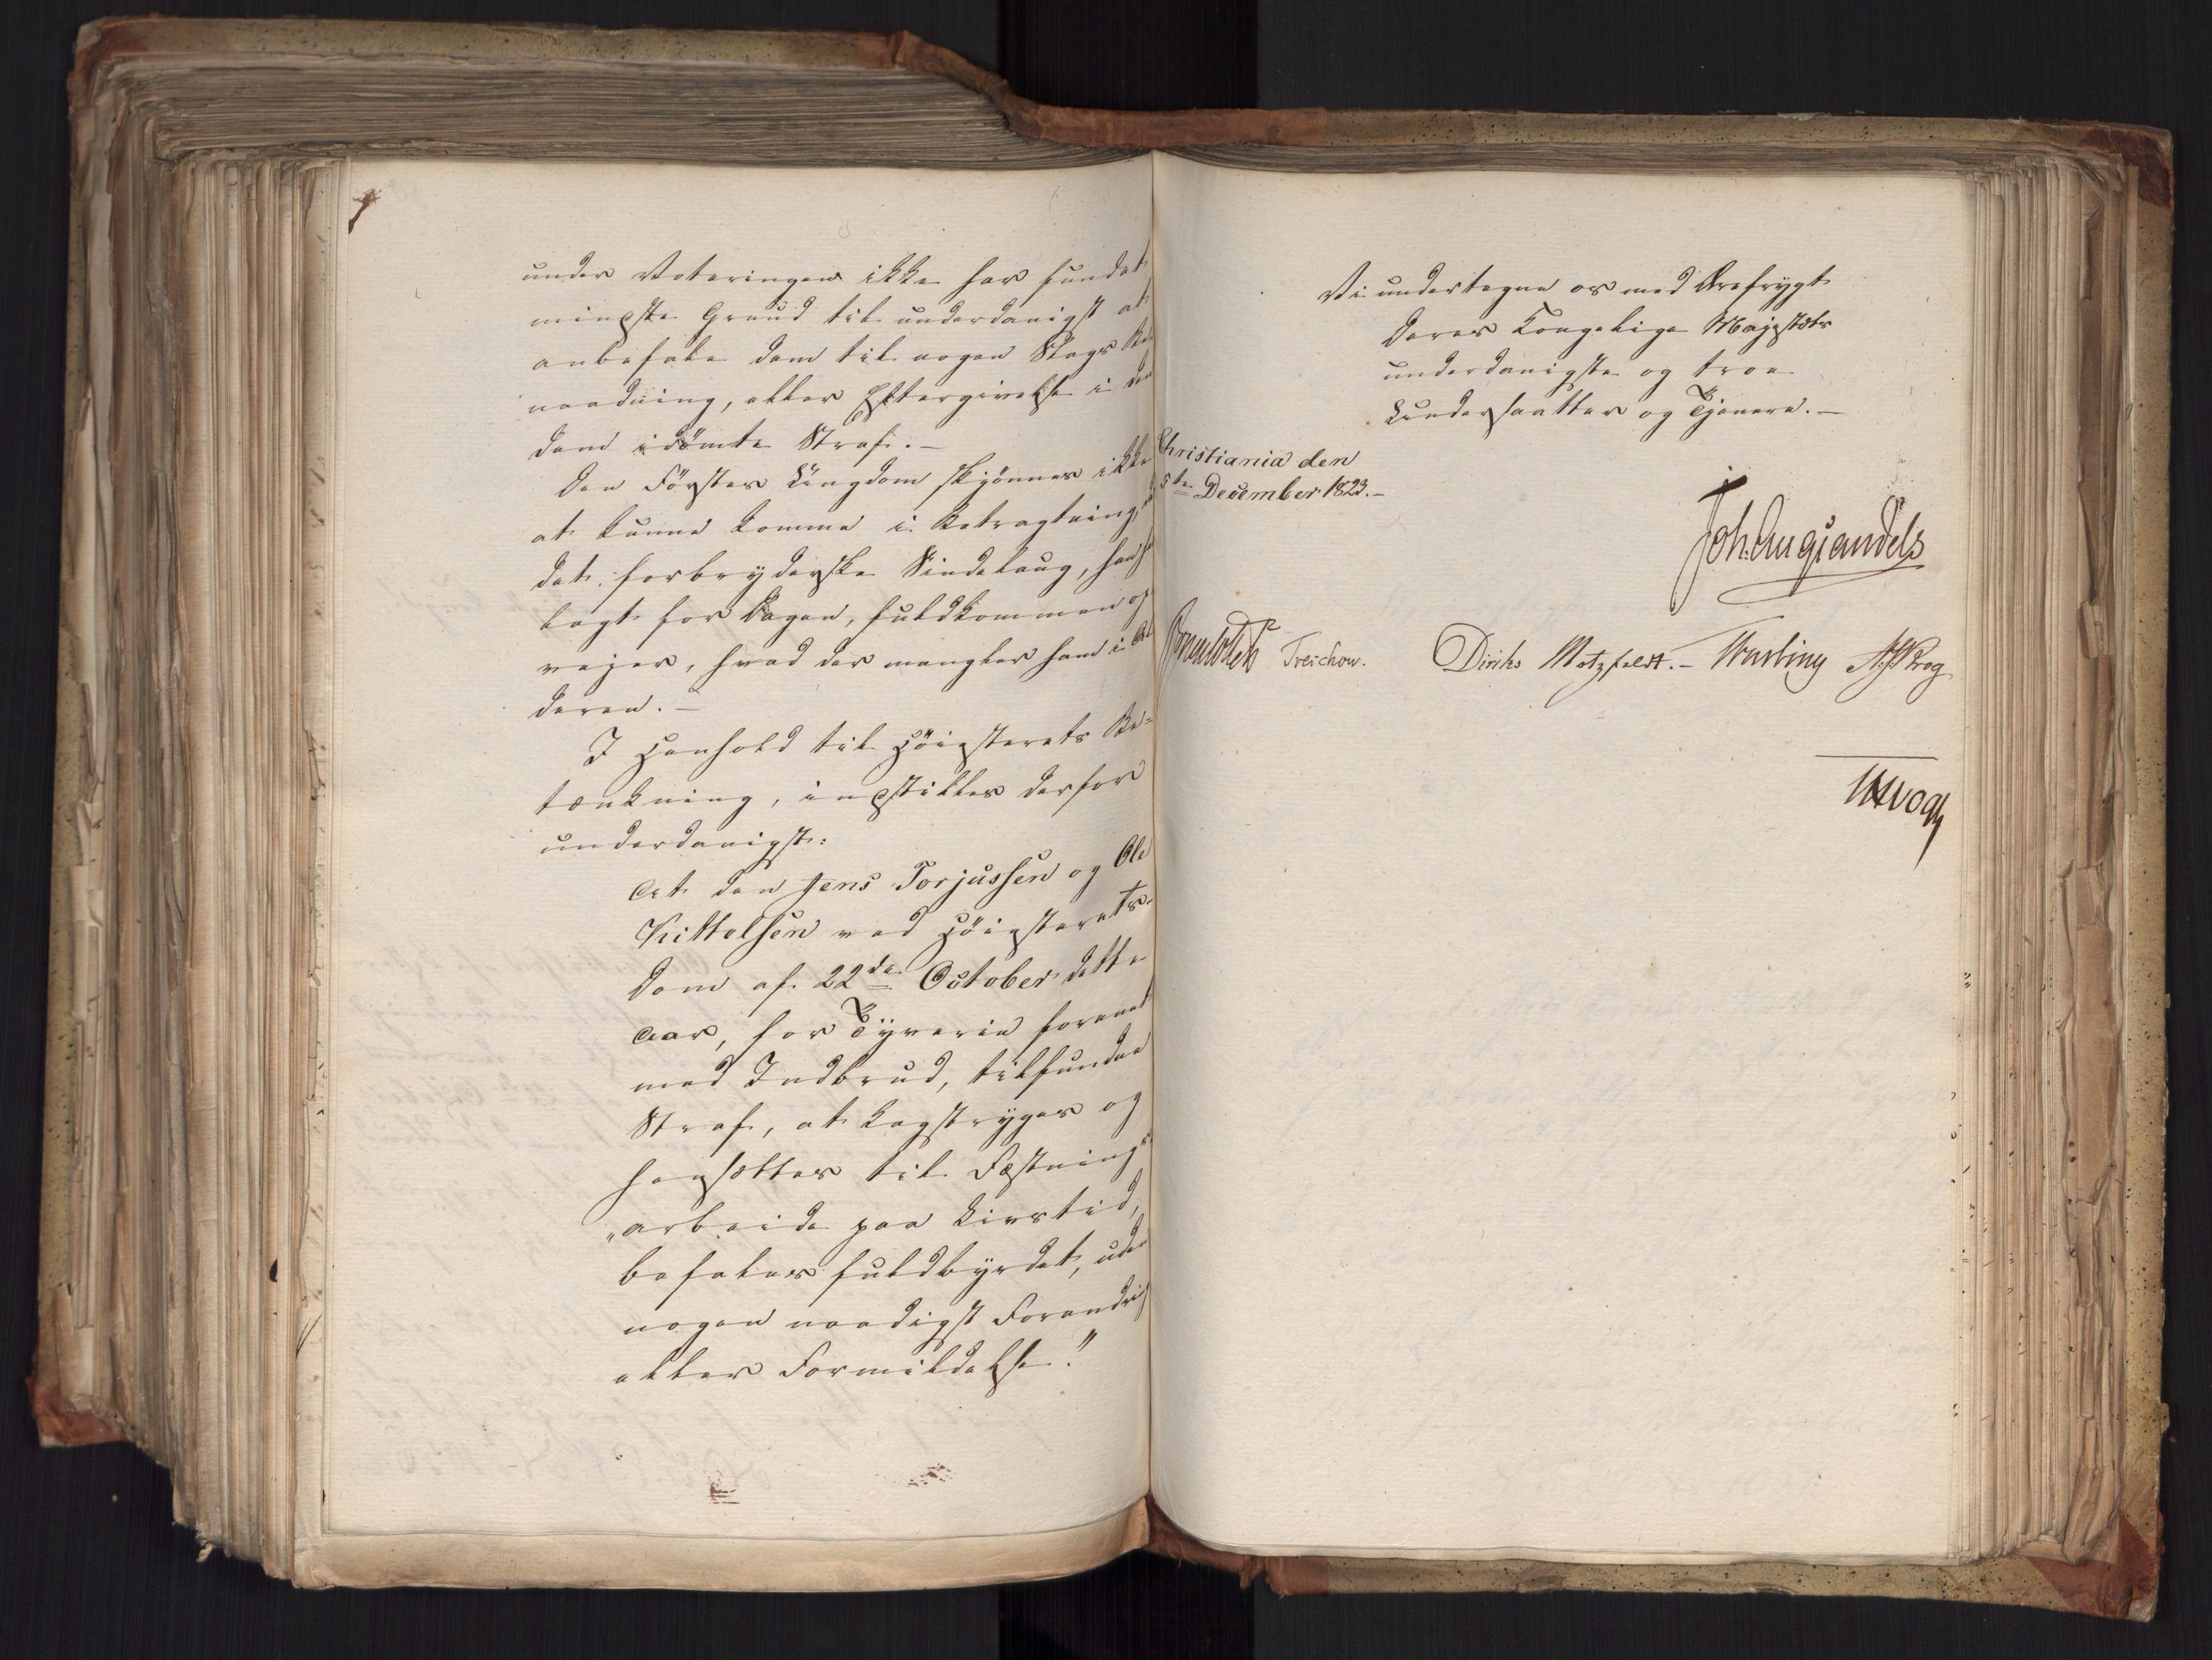 under Voteringen ikke har fundet
mindste Grund til underdanigst at
anbefale dem til nogen Slags Be-
naadning, eller Eftergivelse i den
dem idömte Straf. —
Den Förstes Ungdom skjönnes ikke
at kunne komme i Betragtning,
det forbryderske Sindelaug, han
lagt for Dagen, fuldkommen op
vejer, hvad der mangler ham i Al
deren. —
I Henhold til Höiesterets Be-
tænkning, indstilles derfor
underdanigst:
at den Jens Torjussen og Ole
Kittelsen ved Höiesterets
Dom af 22de October dette
Aar, for Tyverie forenet
med Indbrud, tilfundne
Straf, at kagstryges og
hensættes til Fæstnings
"arbeide paa Livstid,
befales fuldbyrdet, uden
nogen naadigst Forandring
eller Formildelse."
Vi undertegne os med Ærefrygt
Deres Kongelige Majestæts
underdanigste og troe
Undersaatter og Tjenere. —
Christiania den
5te December 1823. —
Joh. Aug Sandels
Sommerhielm Treschow. Diriks Motzfeldt. — Krog
Vogt